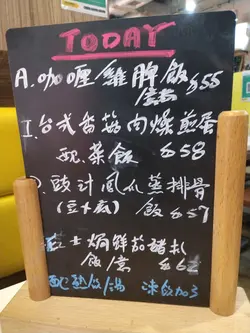 TODAY
A.咖喱雞脾飯 $55
I.台式香菇肉燥煎蛋
配菜飯 $58
豉汁鳳爪蒸排骨
飯 $57
士焗鮮茄豬扒
飯/意 $62
配熱飲/湯 凍飲加3